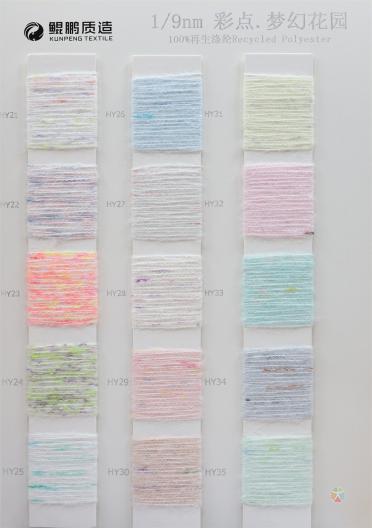 鲲鹏质造
KUNPENG TEXTILE
1/9nm 彩点.梦幻花园
100%再生涤纶Recycled Polyester
HY21
HY26
HY31
HY22
HY27
HY32
HY23
HY28
HY33
HY24
HY29
HY34
HY25
HY30
HY35